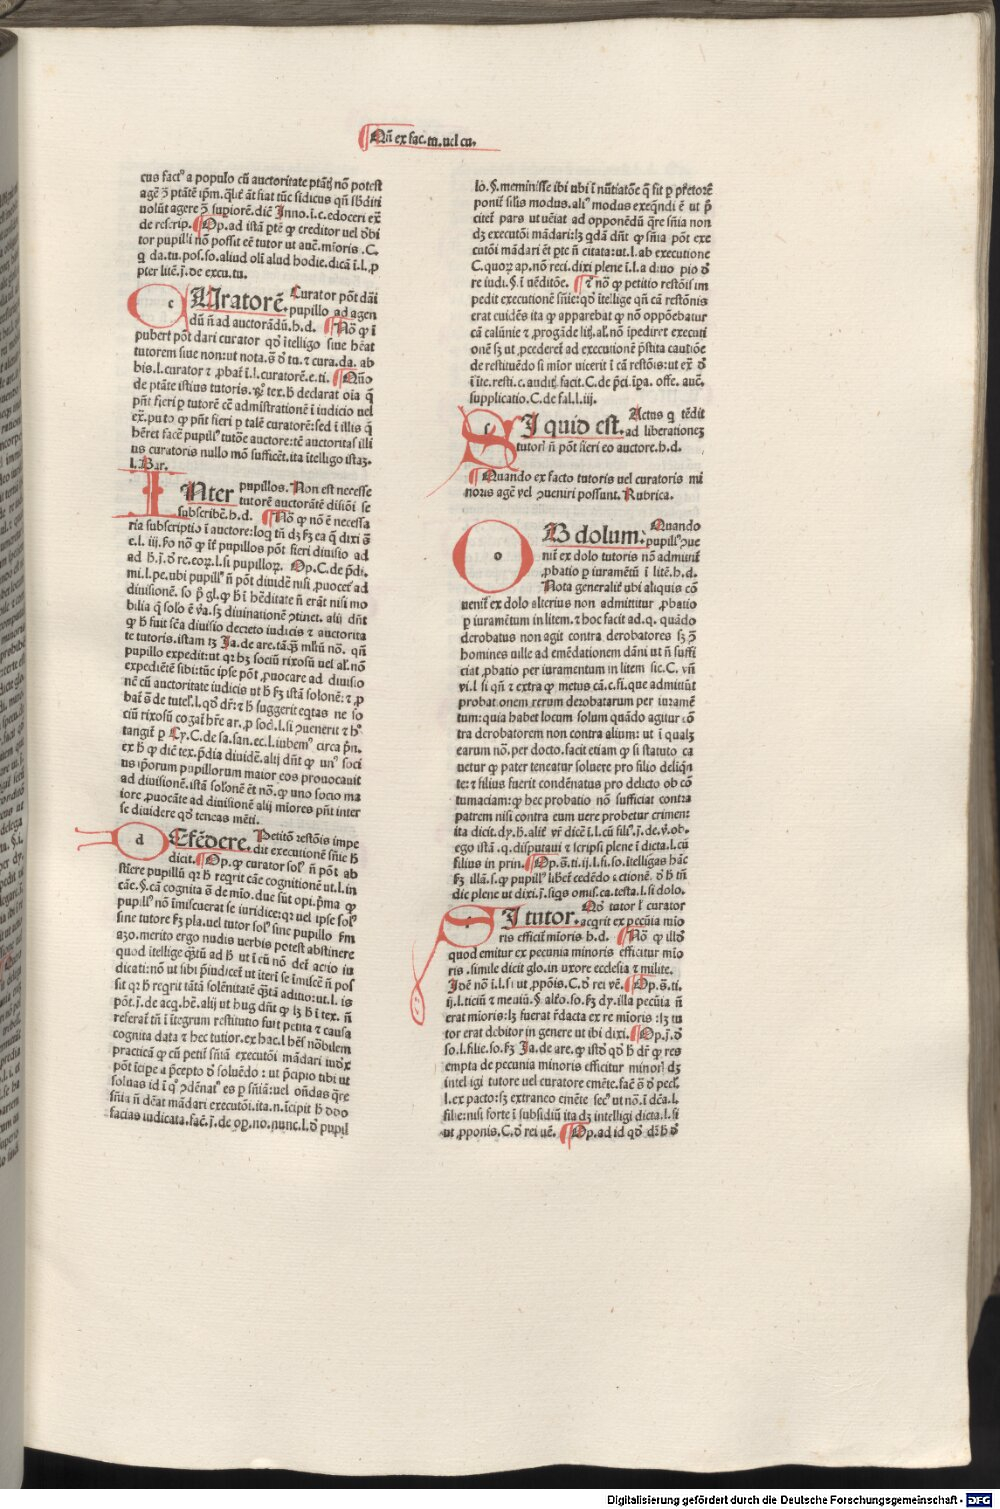 Qñ ex fac. tu. uel cu.
cus fact⁹ a populo cū auctoritate ptāt nō potest
uolūt agere ɔ̄ supiorē. dicē Inno. ī. c. edoceri ex̄
de rescrip. Op. ad istā ꝑtē ꝙ creditor uel d̄bi
tor pupilli nō possit eē tutor ut aucē. mīoris. C.
q̄ da. tu. pos. so. aliud oli alud hodie. dicā ī. l. ꝓ
pter litē. j̄. de excu. tu.
c URatorē. Curator pōt dāi
pupillo ad agen
dū ñ ad auctorādū. h. d. Nō ꝙ ī
pubert pōt dari curator qd̄ ītelligo siue hēat
tutorem siue non: ut nota. s̄. d̄ tu. ⁊ cura. da. ab
bis. l. curator ⁊ ꝓbat̄ ī. l. curatorē. e. ti. Qñō
de ptāte istius tutoris. tex. h̄ declarat oīa q̄
pñt fieri ꝑ tutorē cē admīstrationē ī iudicio uel
ex̄. puto ꝙ pñt fieri ꝑ talē curatorē: sed ī illis q̄
hēret facē pupill⁹ tutōe auctore: tē auctoritas illi
us curatoris nullo mō sufficēt. ita ītelligo istaʒ.
l. Bar.
INter pupillos. Non est necesse
tutorē auctorātē diūsiōi se
subscribē. h. d. Nō ꝙ nō ē necessa
ria subscriptio ī auctore: loq̄ tñ dʒ
e. l. iij. so nō ꝙ īt pupillos pōt fieri diuisio ad
ad h̄. j̄. d̄ re. eoꝝ. l. si pupilloꝝ. Op. C. de p̄di.
mi. l. pe. ubi pupill⁹ ñ pōt diuidē nisi ꝓuocet̄ ad
diuisionē. so ꝑ gl. ꝙ h̄ ī hēditate ñ erāt nisi mo
bilia q̄ solo ē v̄a. sʒ diuinationē ɔtinet. alij dñt
ꝙ h̄ fuit scā diuisio decreto iudicis ⁊ auctorita
te tutoris. istam tʒ Ja. de are.
pupillo expedit: ut qꝛ hʒ sociū rixosū uel al⁹. nō
expediētē sibi: tūc ipse pōt ꝓuocare ad diuisio
nē cū auctoritate iudicis ut h̄ istā solonē: ⁊ ꝓ
bat̄ s̄ de tutel⁹. l. qd̄ dr̄: ⁊ h̄ suggerit eq̄tas ne so
ciū rixosū cogat̄ hr̄e ar. ꝓ soc. l. si ɔuenerit
tangit̄ ꝑ Cy. C. de sa. san. ec. l. iubem⁹ circa pñ.
ex h̄ ꝙ dicē tex. p̄dia diuidē. alij dñt ꝙ un⁹ soci
us ip̄orum pupillorum maior eos prouocauit
ad diuisionē. istā solonē et nō. ꝙ uno socio ma
iore ꝓuocāte ad diuisionē alij miores pñt inter
se diuidere qd̄ teneas mēti.
d Efēdere. Petitō restōis impe
dit executionē sñie h̄
dicit. Op. ꝙ curator sol⁹ ñ pōt ab
stiēre pupillū qꝛ h̄ reqrit cāe cognitionē ut. l. in
cāe. §. cā cognita s̄ de mīo. due sūt opi. p̄ma ꝙ
pupil⁹ nō īmiscuerat se iuridice: qꝛ uel ipse sol⁹
sine tutore pla. uel tutor sol⁹ sine pupillo
azo. merito ergo nudis uerbis potest abstinere
quod itellige q̄tū ad h̄ ut ī cū nō det̄ actio iu
dicati: nō ut sibi p̄iudicet̄ ut iterī se imiscē ñ pos
sit qꝛ h̄ reqrit tātā solēnitatē q̄tā aditio: ut. l. is
pōt. j̄. de acq. hē. alij ut hug dñt ꝙ lʒ h̄ ī tex. ñ
referat̄ tñ ī itegrum restitutio fuit petita ⁊ causa
cognita data ⁊ hec tutior. ex hac. l. hēs nōbilem
practicā ꝙ cū petit̄ sñiā executōi mādari iudex
pōt īcipe a p̄cepto d̄ soluēdo: ut p̄cipio tibi ut
soluas id ī q⁹ ɔdēnat⁹ es ꝑ sñiā: uel
sñia ñ dēat mādari executōi. ita. n. icipit h̄
facias iudicata. facē. j̄. de oꝑ. no. nunc. l. d̄ pupil
lo. §. meminisse ibi ubi ī nūtiatōe q̄ fit ꝑ p̄etorē
ponit̄ silis modus. ali⁹ modus exeq̄ndi ē ut p̄
citet̄ pars ut ueniat ad opponēdū q̄re sñia non
dʒ executōi mādari: lʒ qdā dñt ꝙ sñia pōt exe
cutōi mādari ēt ꝑte ñ citata: ut. l. ab executione
C. quoꝝ ap. nō reci. dixi plene ī. l. a diuo pio d̄
re iudi. §. ī uēditōe. ⁊ nō ꝙ petitio restōis im
pedit executionē sñie: qd̄ itellige qñ cā restōnis
erat euidēs ita ꝙ apparebat ꝙ nō oppōebatur
cā calūnie ⁊ ꝓrogāde litis. al⁹. nō ipediret executi
onē sʒ ut ꝓcederet̄ ad executionē p̄stita cautiōe
de restituēdo si mīor uicerit ī cā restōis: ut ex̄ d̄
ī ite. resti. c. audit facit. C. de p̄ci. ipa. offe. aucē.
supplicatio. C. de fal. l. iij.
s I quid est. Actus q̄ tēdit
ad liberationeʒ
tutori ñ pōt fieri eo auctore. h. d.
Quando ex facto tutoris uel curatoris mi
noris agē vel ɔueniri possunt. Rubrica.
o OB dolum. Quando
pupill⁹ ɔue
nit̄ ex dolo tutoris nō admittit̄
ꝓbatio ꝑ iuramētū ī litē. h. d.
Nota generalit̄ ubi aliquis cō
uenit̄ ex dolo alterius non admittitur ꝓbatio
ꝑ iuramētum in litem. ⁊ hoc facit ad. q. quādo
derobatus non agit contra derobatores sʒ ɔ̄
homines uille ad emēdationem dāni ut ñ suffi
ciat ꝓbatio per iuramentum in litem sic. C. vñ
vi. l. si qñ ⁊ extra ꝙ metus cā. c. fi. que admittūt
probationem rerum derobatarum per iuramē
tum: quia habet locum solum quādo agitur cō
tra derobatorem non contra alium: ut ī qualʒ
earum nō. per docto. facit etiam ꝙ si statuto ca
uetur ꝙ pater teneatur soluere pro filio deliq̄n
te: ⁊ filius fuerit condēnatus pro delicto ob cō
tumaciam: ꝙ hec probatio nō sufficiat contra
patrem nisi contra eum uere probetur crimen:
ita dicit. dy. h̄. alit̄ vr̄ dicē ī. l. cū fili⁹. j̄. de. v̄. ob.
ego istā. q. disputaui ⁊ scripsi plene ī dicta. l. cū
filius in prin. Op. s̄. ti. ij. l. fi. so. itelligas hāc
illā. s. ꝙ pupill⁹ libet̄ cedēdo actionē. d̄ h̄ tñ
dic plene ut dixi. j̄. siqs omis. ca. testa. l. si dolo.
s I tutor. Nō tutor l̄ curator
acqrit ex pecūia mīo
ris efficit̄ mīoris h. d. Nō ꝙ illd̄
quod emitur ex pecunia minoris efficitur mīo
ris. simile dicit glo. in uxore ecclesia ⁊ milite.
Idē nō ī. l. si ut ꝓpōis. C. d̄ rei vē. Op. s̄. ti.
ij. l. ticiū ⁊ meuiū. §. altēo. so. dy. illa pecūia ñ
erat mīoris: lʒ fuerat r̄dacta ex re mīoris: lʒ tu
tor erat debitor in genere ut ibi dixi. Op. j̄. d̄
so. l. filie. so. Ja. de are. ꝙ istō qd̄ h̄ dr̄ ꝙ res
empta de pecunia minoris efficitur minori dʒ
intelligi tutore uel curatore emēte. facē s̄ d̄ pecl⁹.
l. ex pacto: sʒ extraneo emēte sec⁹ ut nō. ī dcā. l.
filie: nisi forte ī subsidiū ita dʒ intelligi dicta. l. si
ut ꝓponis. C. d̄ rei uē. Op. ad id qd̄ dr̄ h̄ d̄
Digitalisierung gefördert durch die Deutsche Forschungsgemeinschaft - DFG